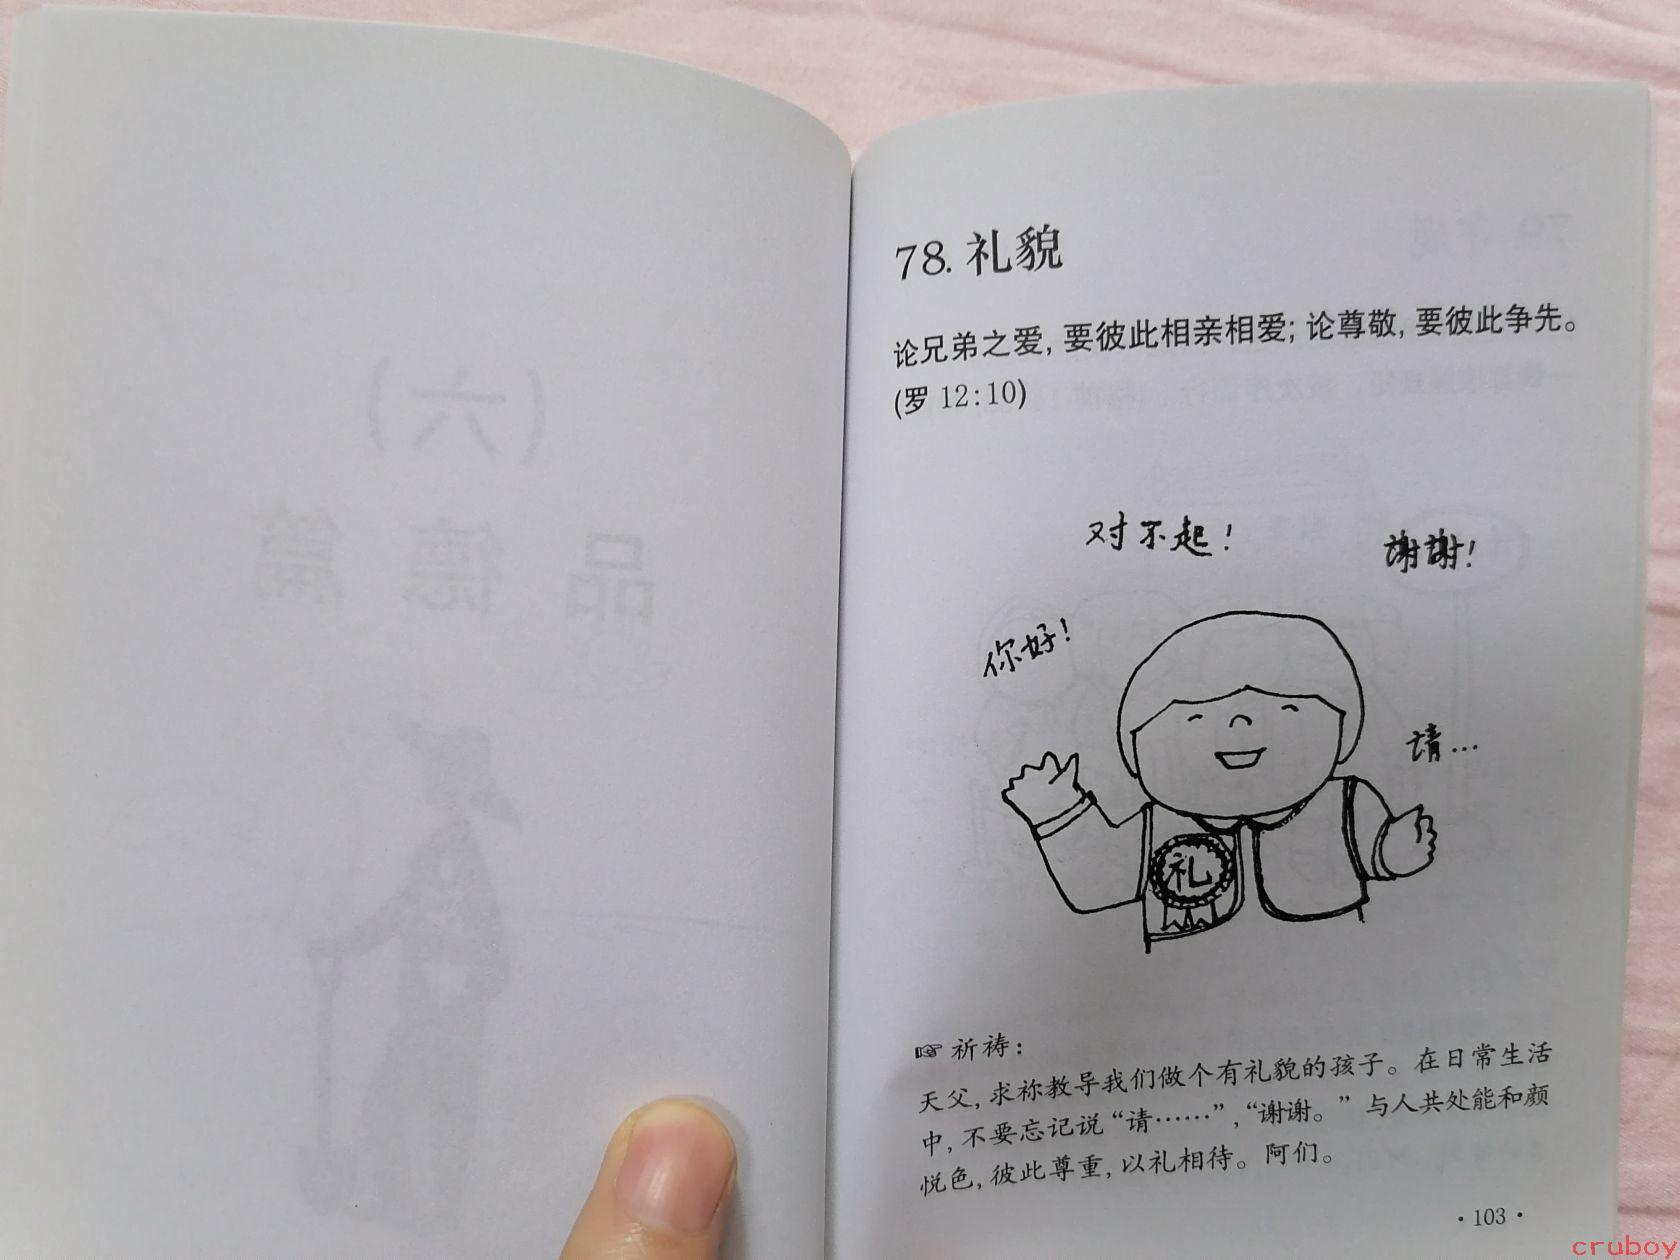 (六)
品德篇
78. 礼貌
论兄弟之爱, 要彼此相亲相爱; 论尊敬, 要彼此争先。
(罗 12:10)
对不起!
謝謝!
你好!
请...
礼
☞ 祈祷:
天父, 求祢教导我们做个有礼貌的孩子。在日常生活
中, 不要忘记说“请……”, “谢谢。” 与人共处能和颜
悦色, 彼此尊重, 以礼相待。阿们。
· 103 ·
cruboy